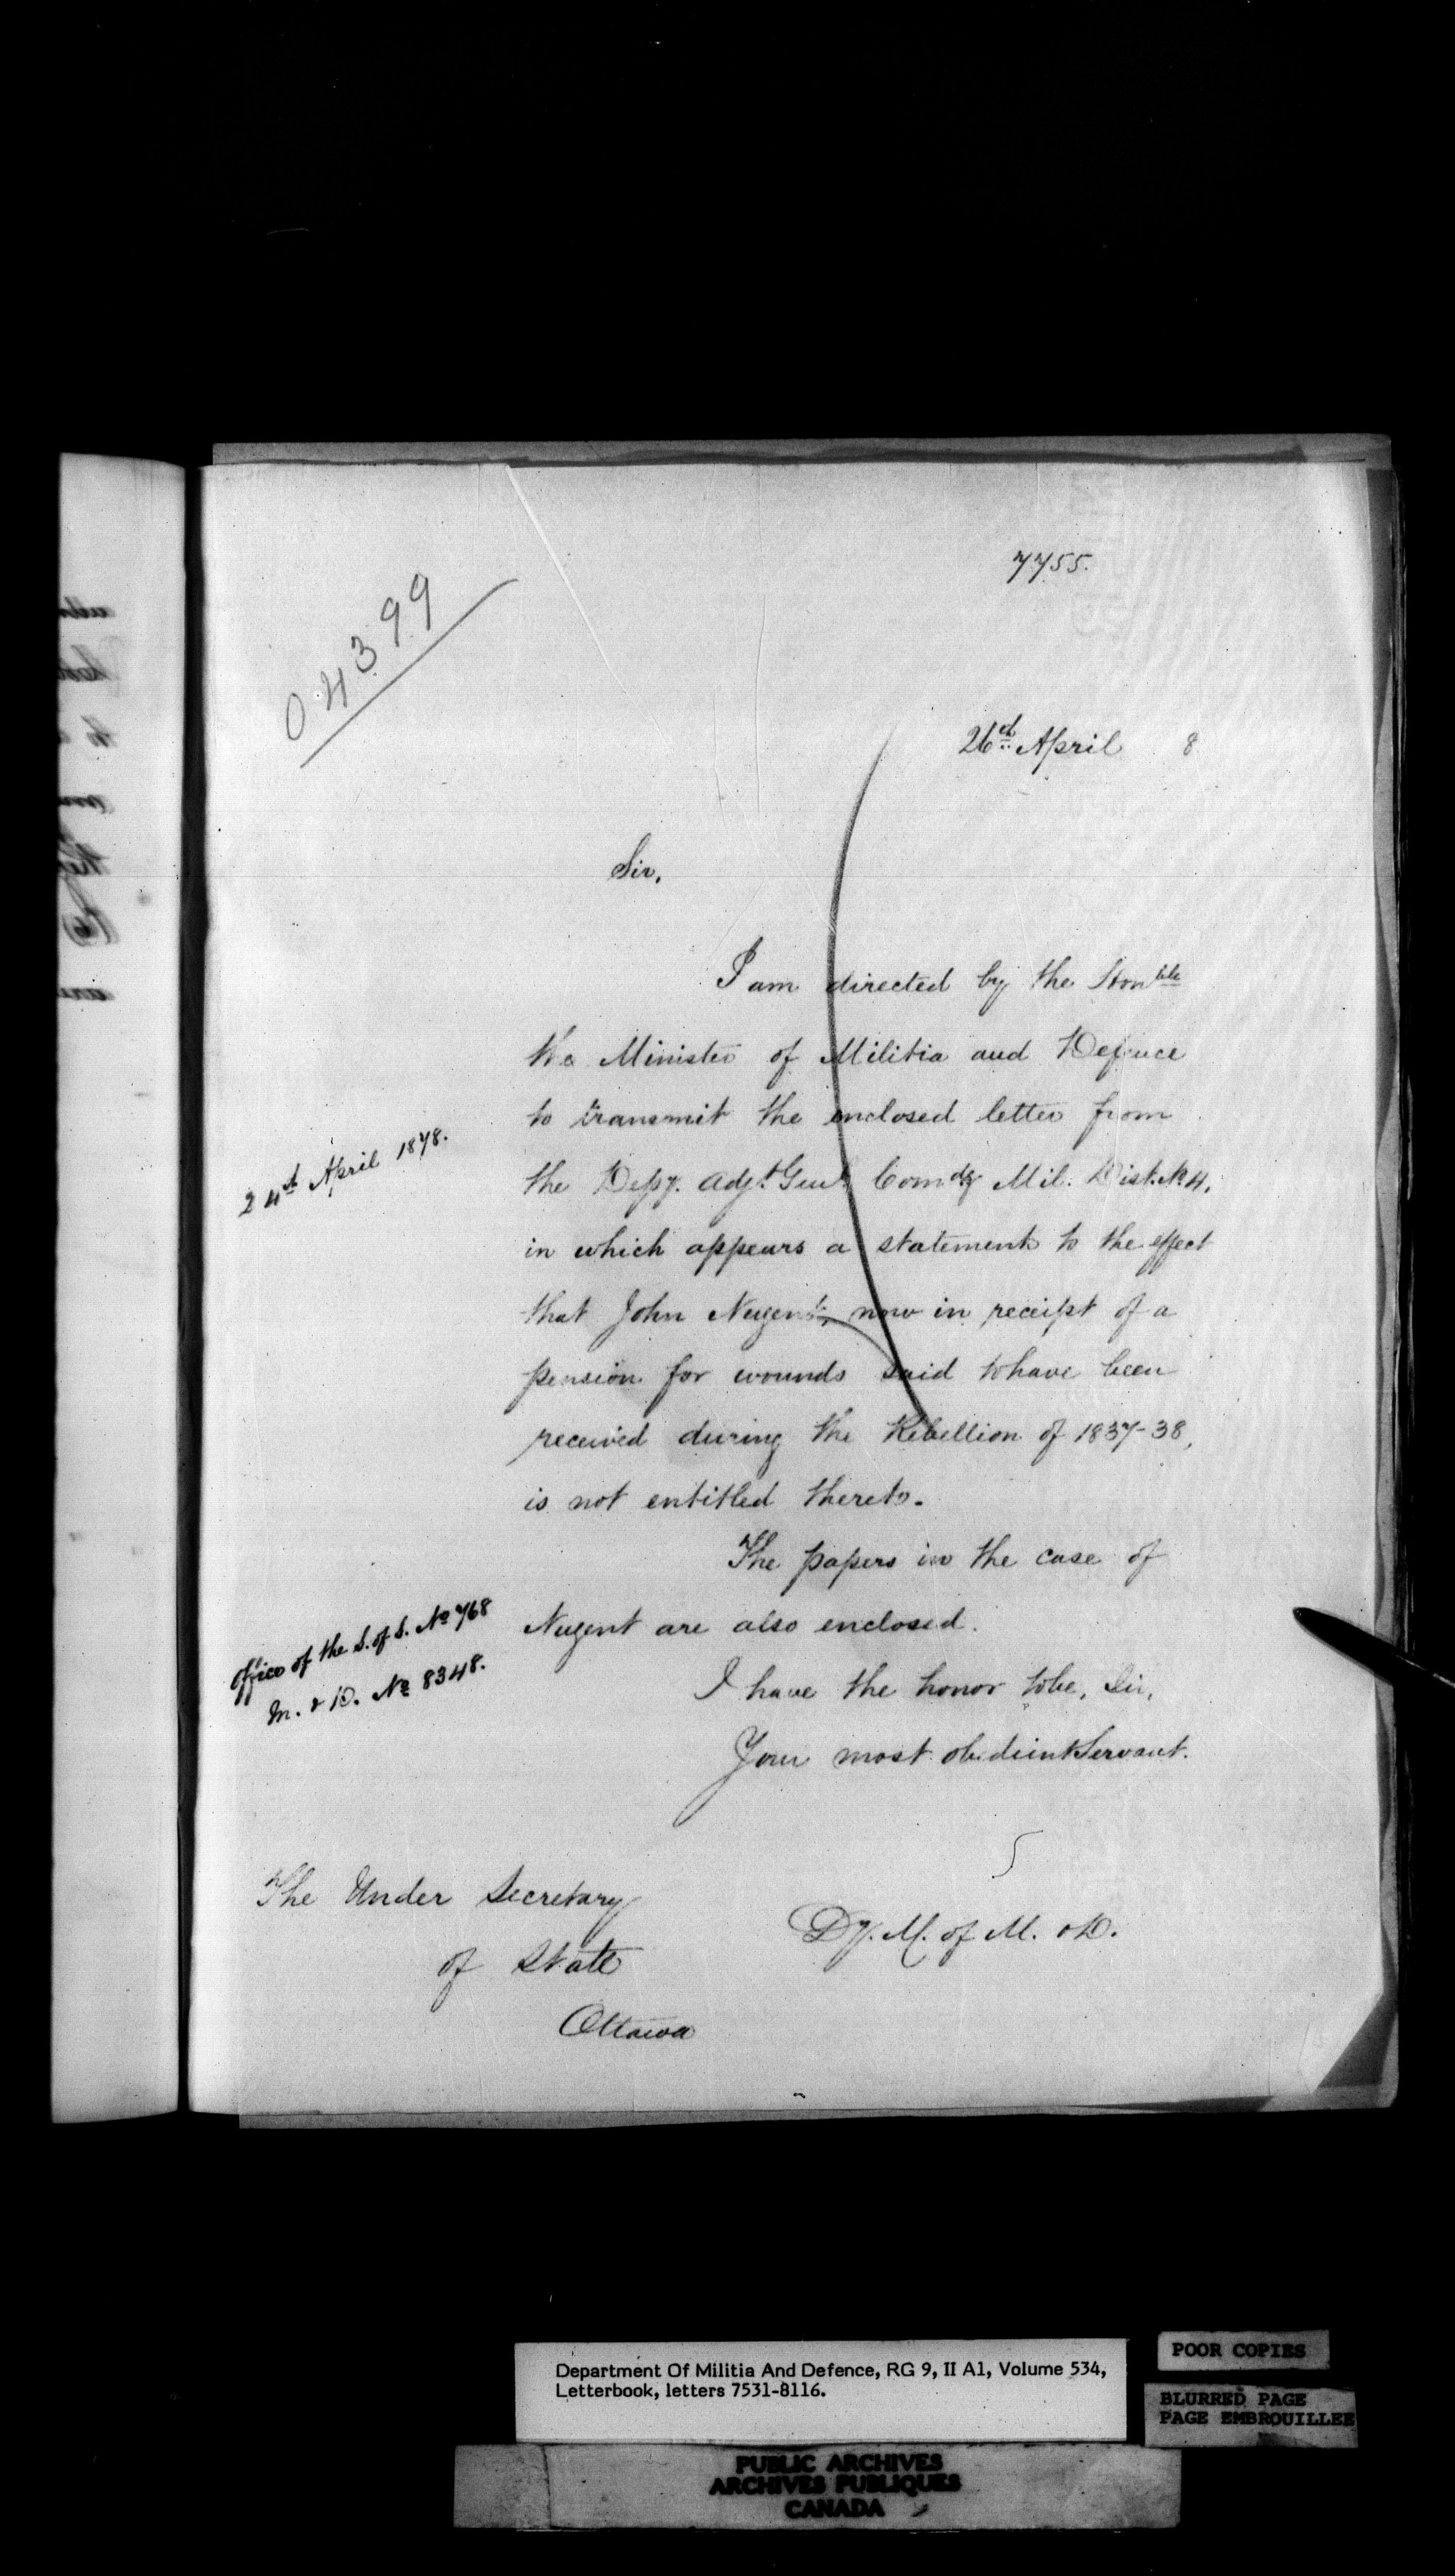 7755.
04399
26th April 8
Sir,
I am directed by the Honble
the Minister of Militia and Defence
to transmit the enclosed letter from
24th April 1878.
the Depy. Adjt Genl. Comdg Mil. Dist. No 4,
in which appears a statement to the effect
that John Nugent, now in receipt of a
pension for wounds said to have been
received during the Rebellion of 1837-38,
is not entitled thereto.
The papers in the case of
Office of the S. of S. No 768
M. & D. No 8348.
Nugent are also enclosed.
I have the honor to be, Sir,
Your most obedient Servant.
Dy. M. of M. & D.
The Under Secretary
of State
Ottawa
Department Of Militia And Defence, RG 9, II A1, Volume 534,
Letterbook, letters 7531-8116.
POOR COPIES
BLURRED PAGE
PAGE EMBROUILLEE
PUBLIC ARCHIVES
ARCHIVES PUBLIQUES
CANADA